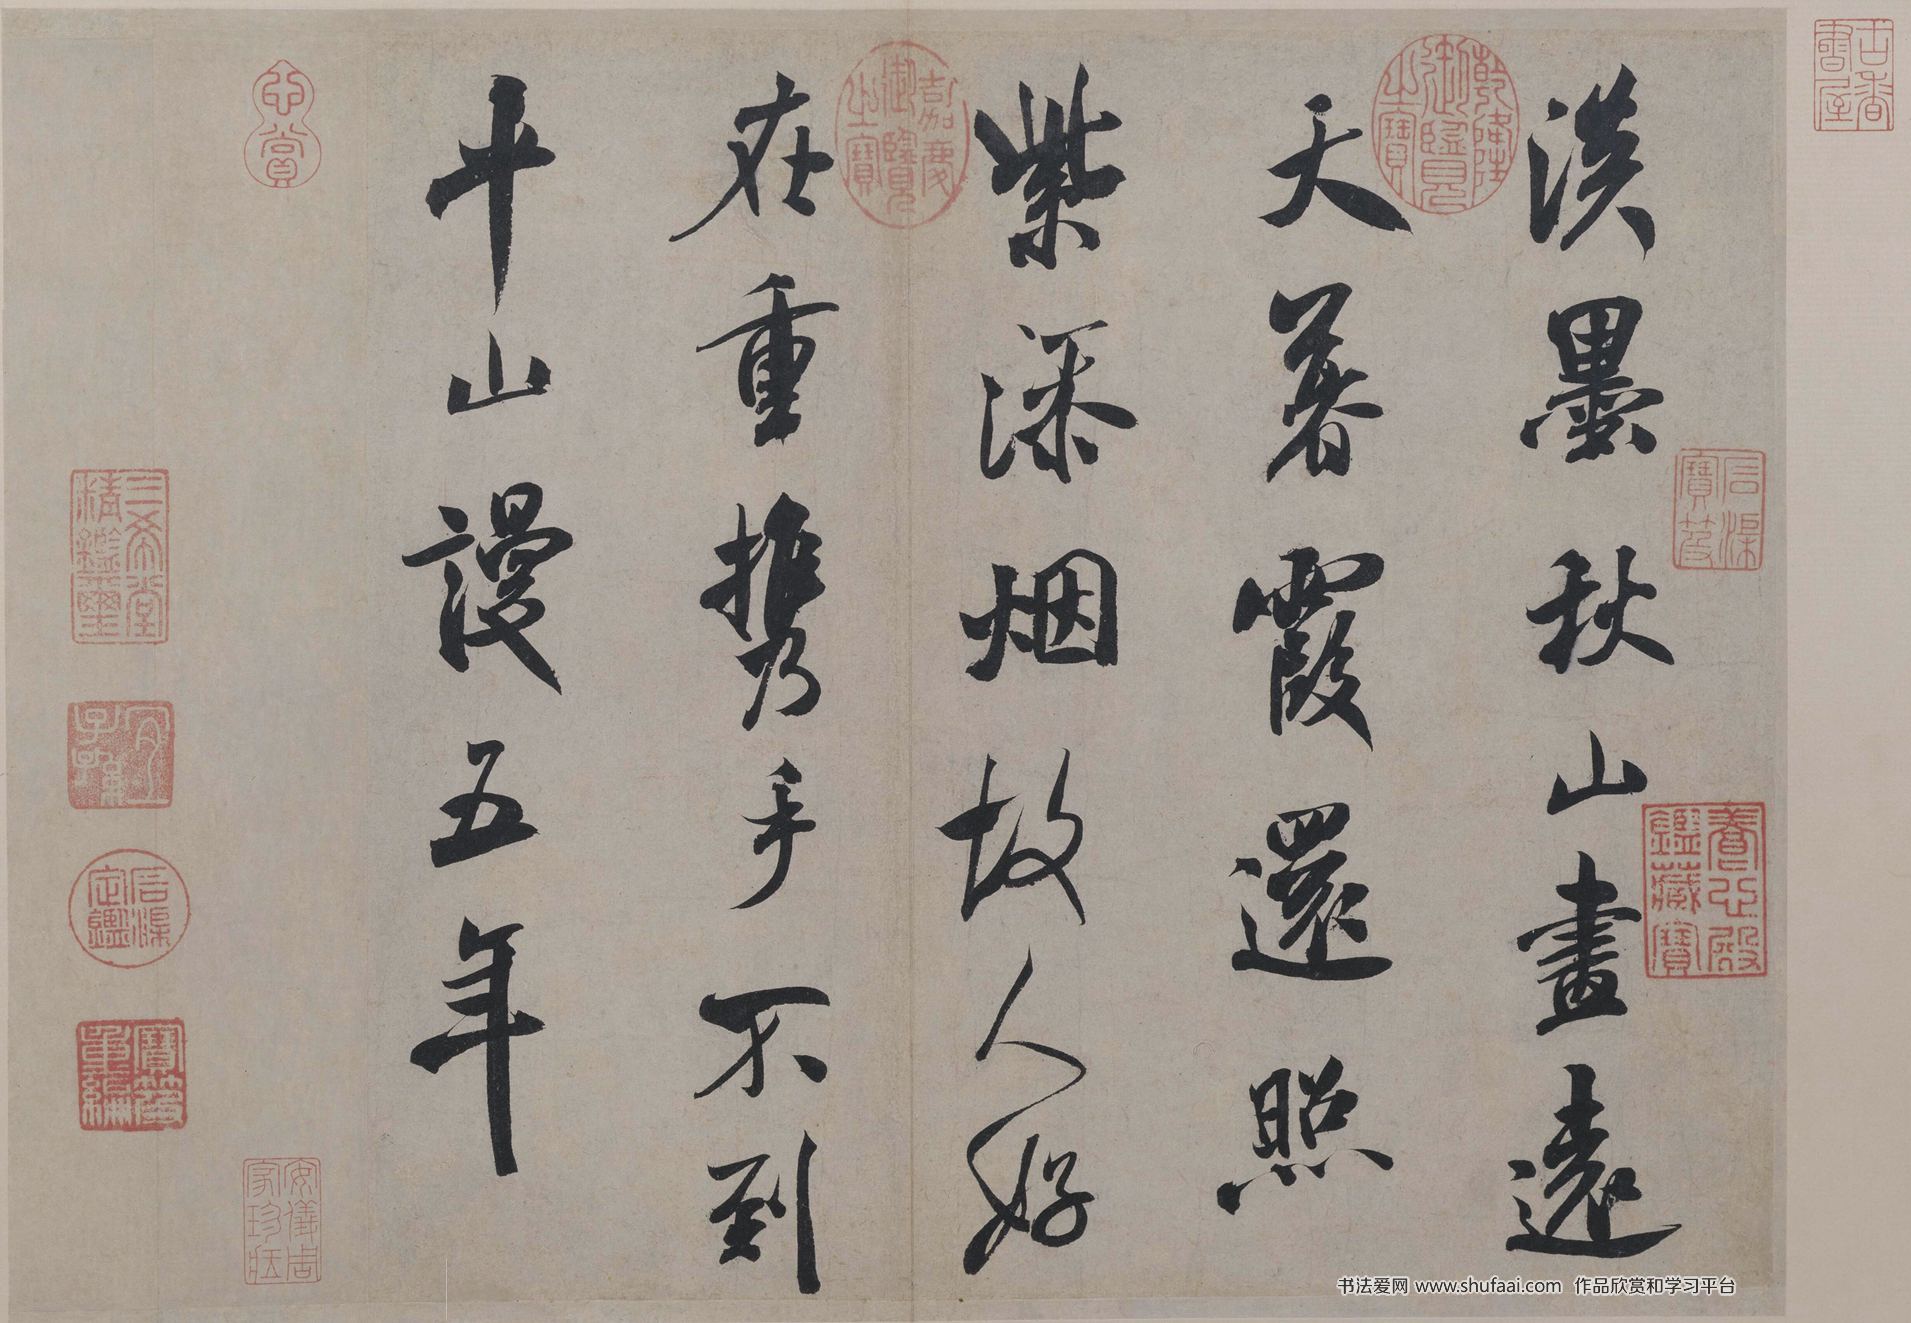 古香書屋
乾隆御覽之寶
淡墨秋山畫遠
天暮霞還照
嘉慶御覽之寶
紫添烟故人好
在重携手不到
平山謾五年
養心殿鑑藏寶
心賞
三希堂精鑑璽
宜子孫
寶笈重編
安儀周家珍藏
书法爱网 www.shufaai.com 作品欣赏和学习平台